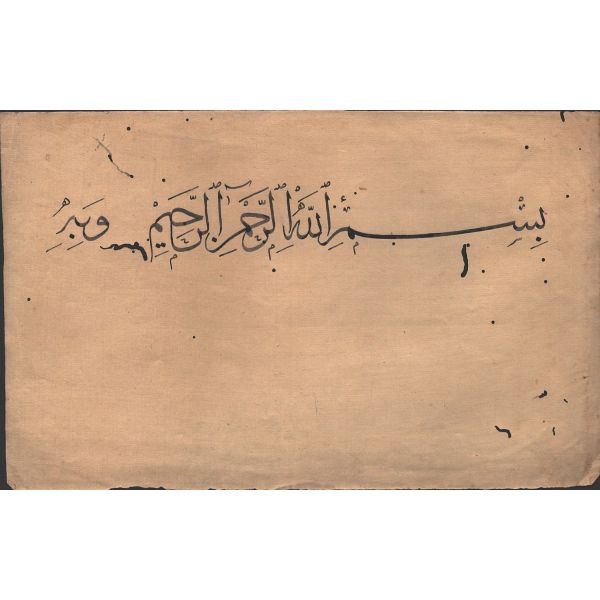 بِسْمِ اللّٰهِ الرَّحْمٰنِ الرَّحِيْمِ وَبِهِ